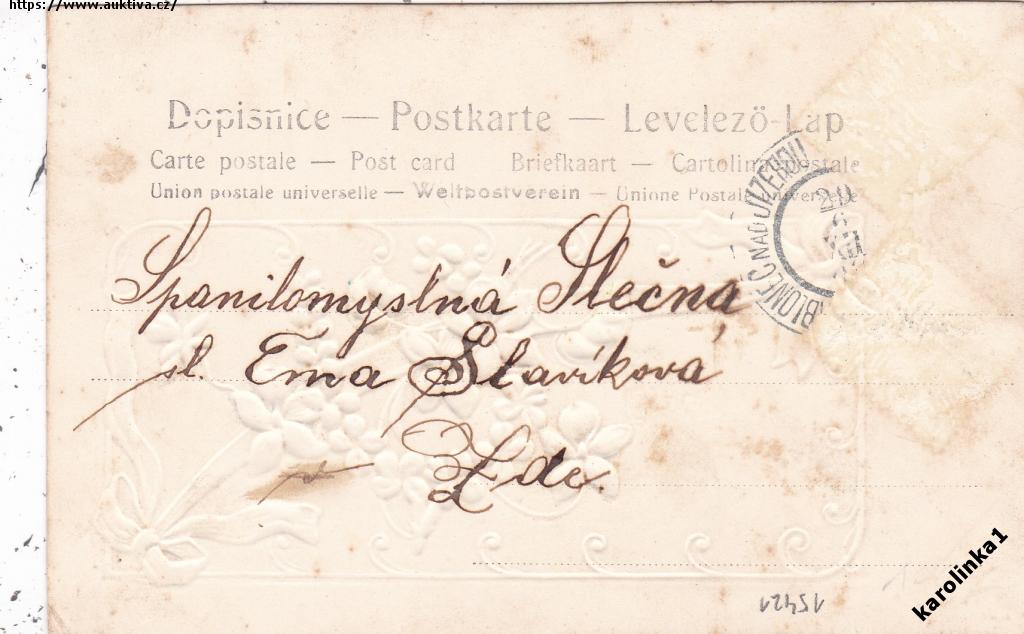 https://www.auktiva.cz/
Dopisnice — Postkarte — Levelezö-Lap
Carte postale — Post card Briefkaart — Cartolina postale
Union postale universelle — Weltpostverein — Unione Postale universelle
JABLONEC NAD JIZEROU
Spanilomyslná Slečna
sl. Ema Slavíková
Zde.
15421
karolinka1